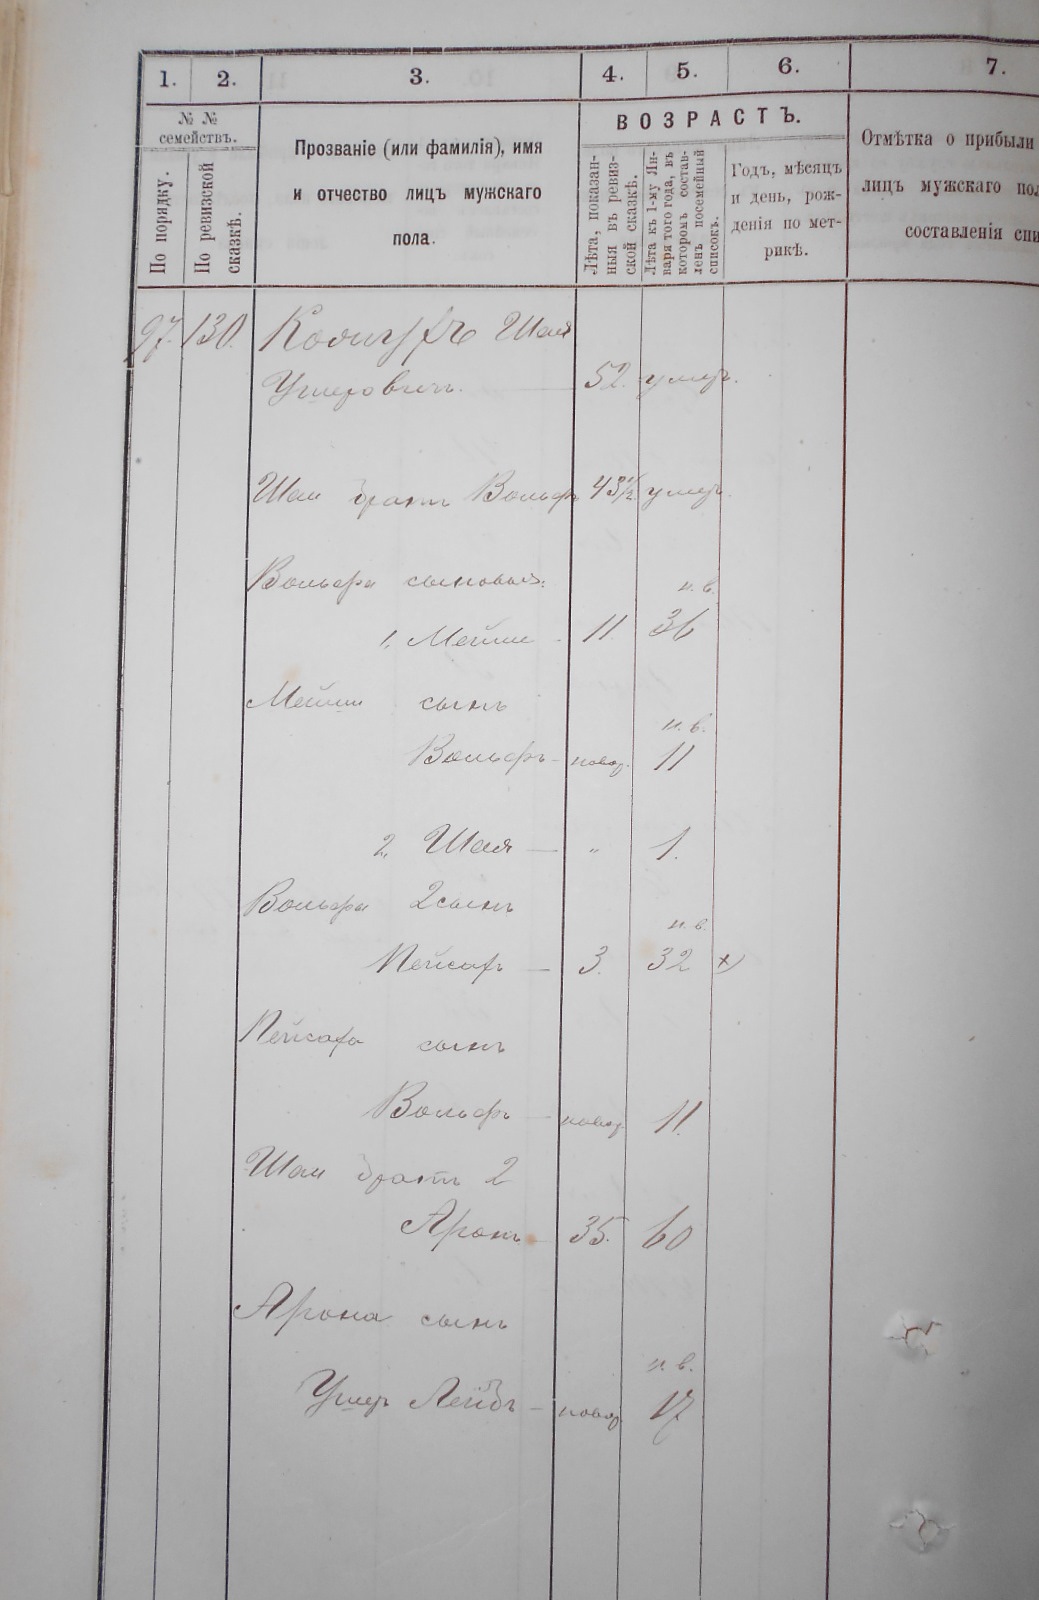 1. 2. 3. 4. 5. 6. 7.
№ №
семействъ.
По порядку.
По ревизской
сказкѣ.
Прозваніе (или фамилія), имя
и отчество лицъ мужскаго
пола.
ВОЗРАСТЪ.
Лѣта, показан-
ныя въ ревиз-
ской сказкѣ.
Лѣта къ 1-му Ян-
варя того года, въ
которомъ состав-
ленъ посемейный
списокъ.
Годъ, мѣсяцъ
и день, рож-
денія по мет-
рикѣ.
Отмѣтка о прибыли
лицъ мужскаго пол
составленія спи
97. 130. Шая
Ушеровичъ. 52. умер.
Шаи братъ Вольфъ 43½ умер.
Вольфа сыновья:
н. в.
1, Мейши - 11 36
Мейши сынъ
н. в.
Вольфъ - новор. 11
2, Шая — " 1.
Вольфа 2 сынъ
н. в.
Пейсахъ — 3. 32 ×)
Пейсаха сынъ
Вольфъ — новор. 11.
Шаи братъ 2
Аронъ — 35. 60
Арона сынъ
н. в.
Ушеръ Лейбъ - новор. 17